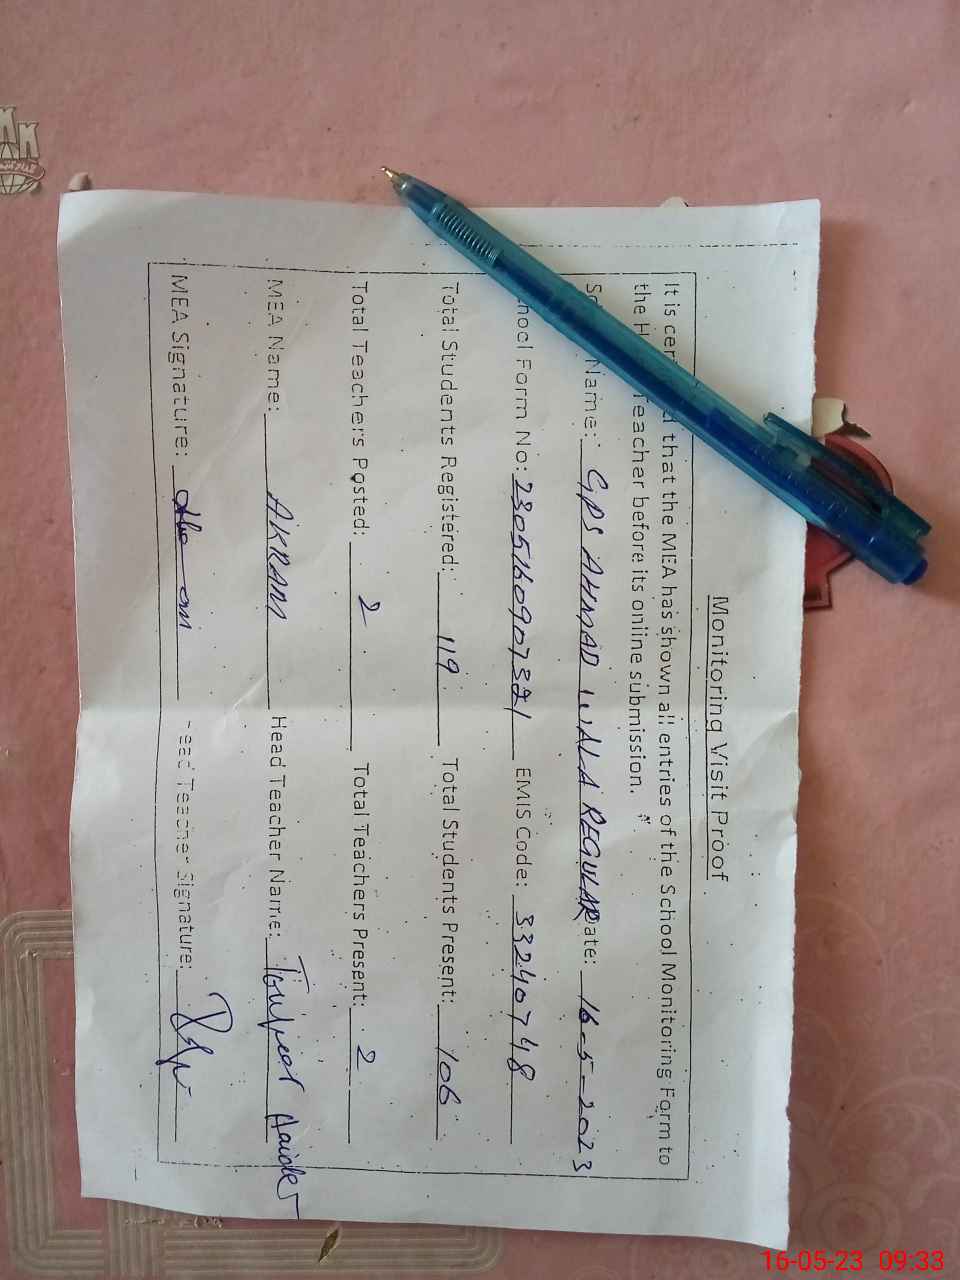 Monitoring Visit Proof
It is cer d that the MEA has shown all entries of the School Monitoring Form to
the H Teacher before its online submission.
Name: GPS AHMAD WALA REGULAR ate: 16-5-2023
hool Form No: 2305160907321 EMIS Code: 33240748
Total Students Registered: 119 Total Students Present: 106
Total Teachers Posted: 2 Total Teachers Present: 2
MEA Name: AKRAM Head Teacher Name: Haider
MEA Signature: Head Teacher Signature:
16-05-23 09:33